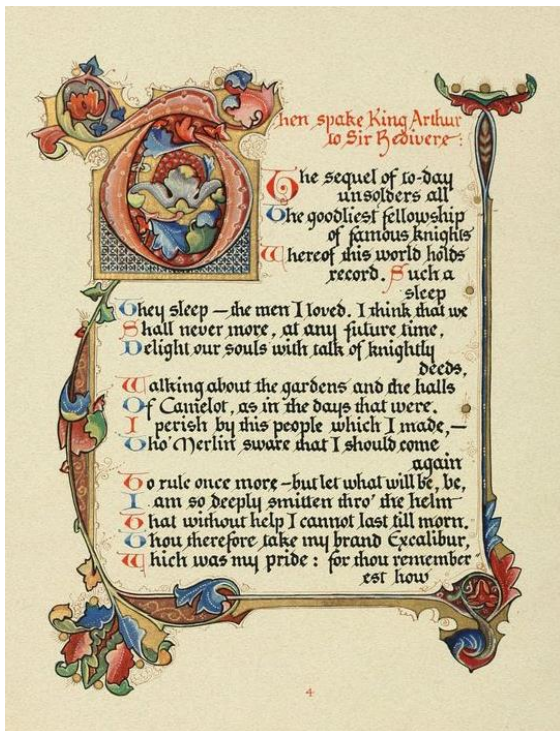 Then spake King Arthur
to Sir Bedivere:
The sequel of to-day
unsolders all
The goodliest fellowship
of famous knights
Whereof this world holds
record. Such a
sleep
They sleep — the men I loved. I think that we
Shall never more, at any future time,
Delight our souls with talk of knightly
deeds,
Walking about the gardens and the halls
Of Camelot, as in the days that were.
I perish by this people which I made,—
Tho' Merlin sware that I should come
again
To rule once more — but let what will be, be,
I am so deeply smitten thro' the helm
That without help I cannot last till morn.
Thou therefore take my brand Excalibur,
Which was my pride: for thou remember
est how
4